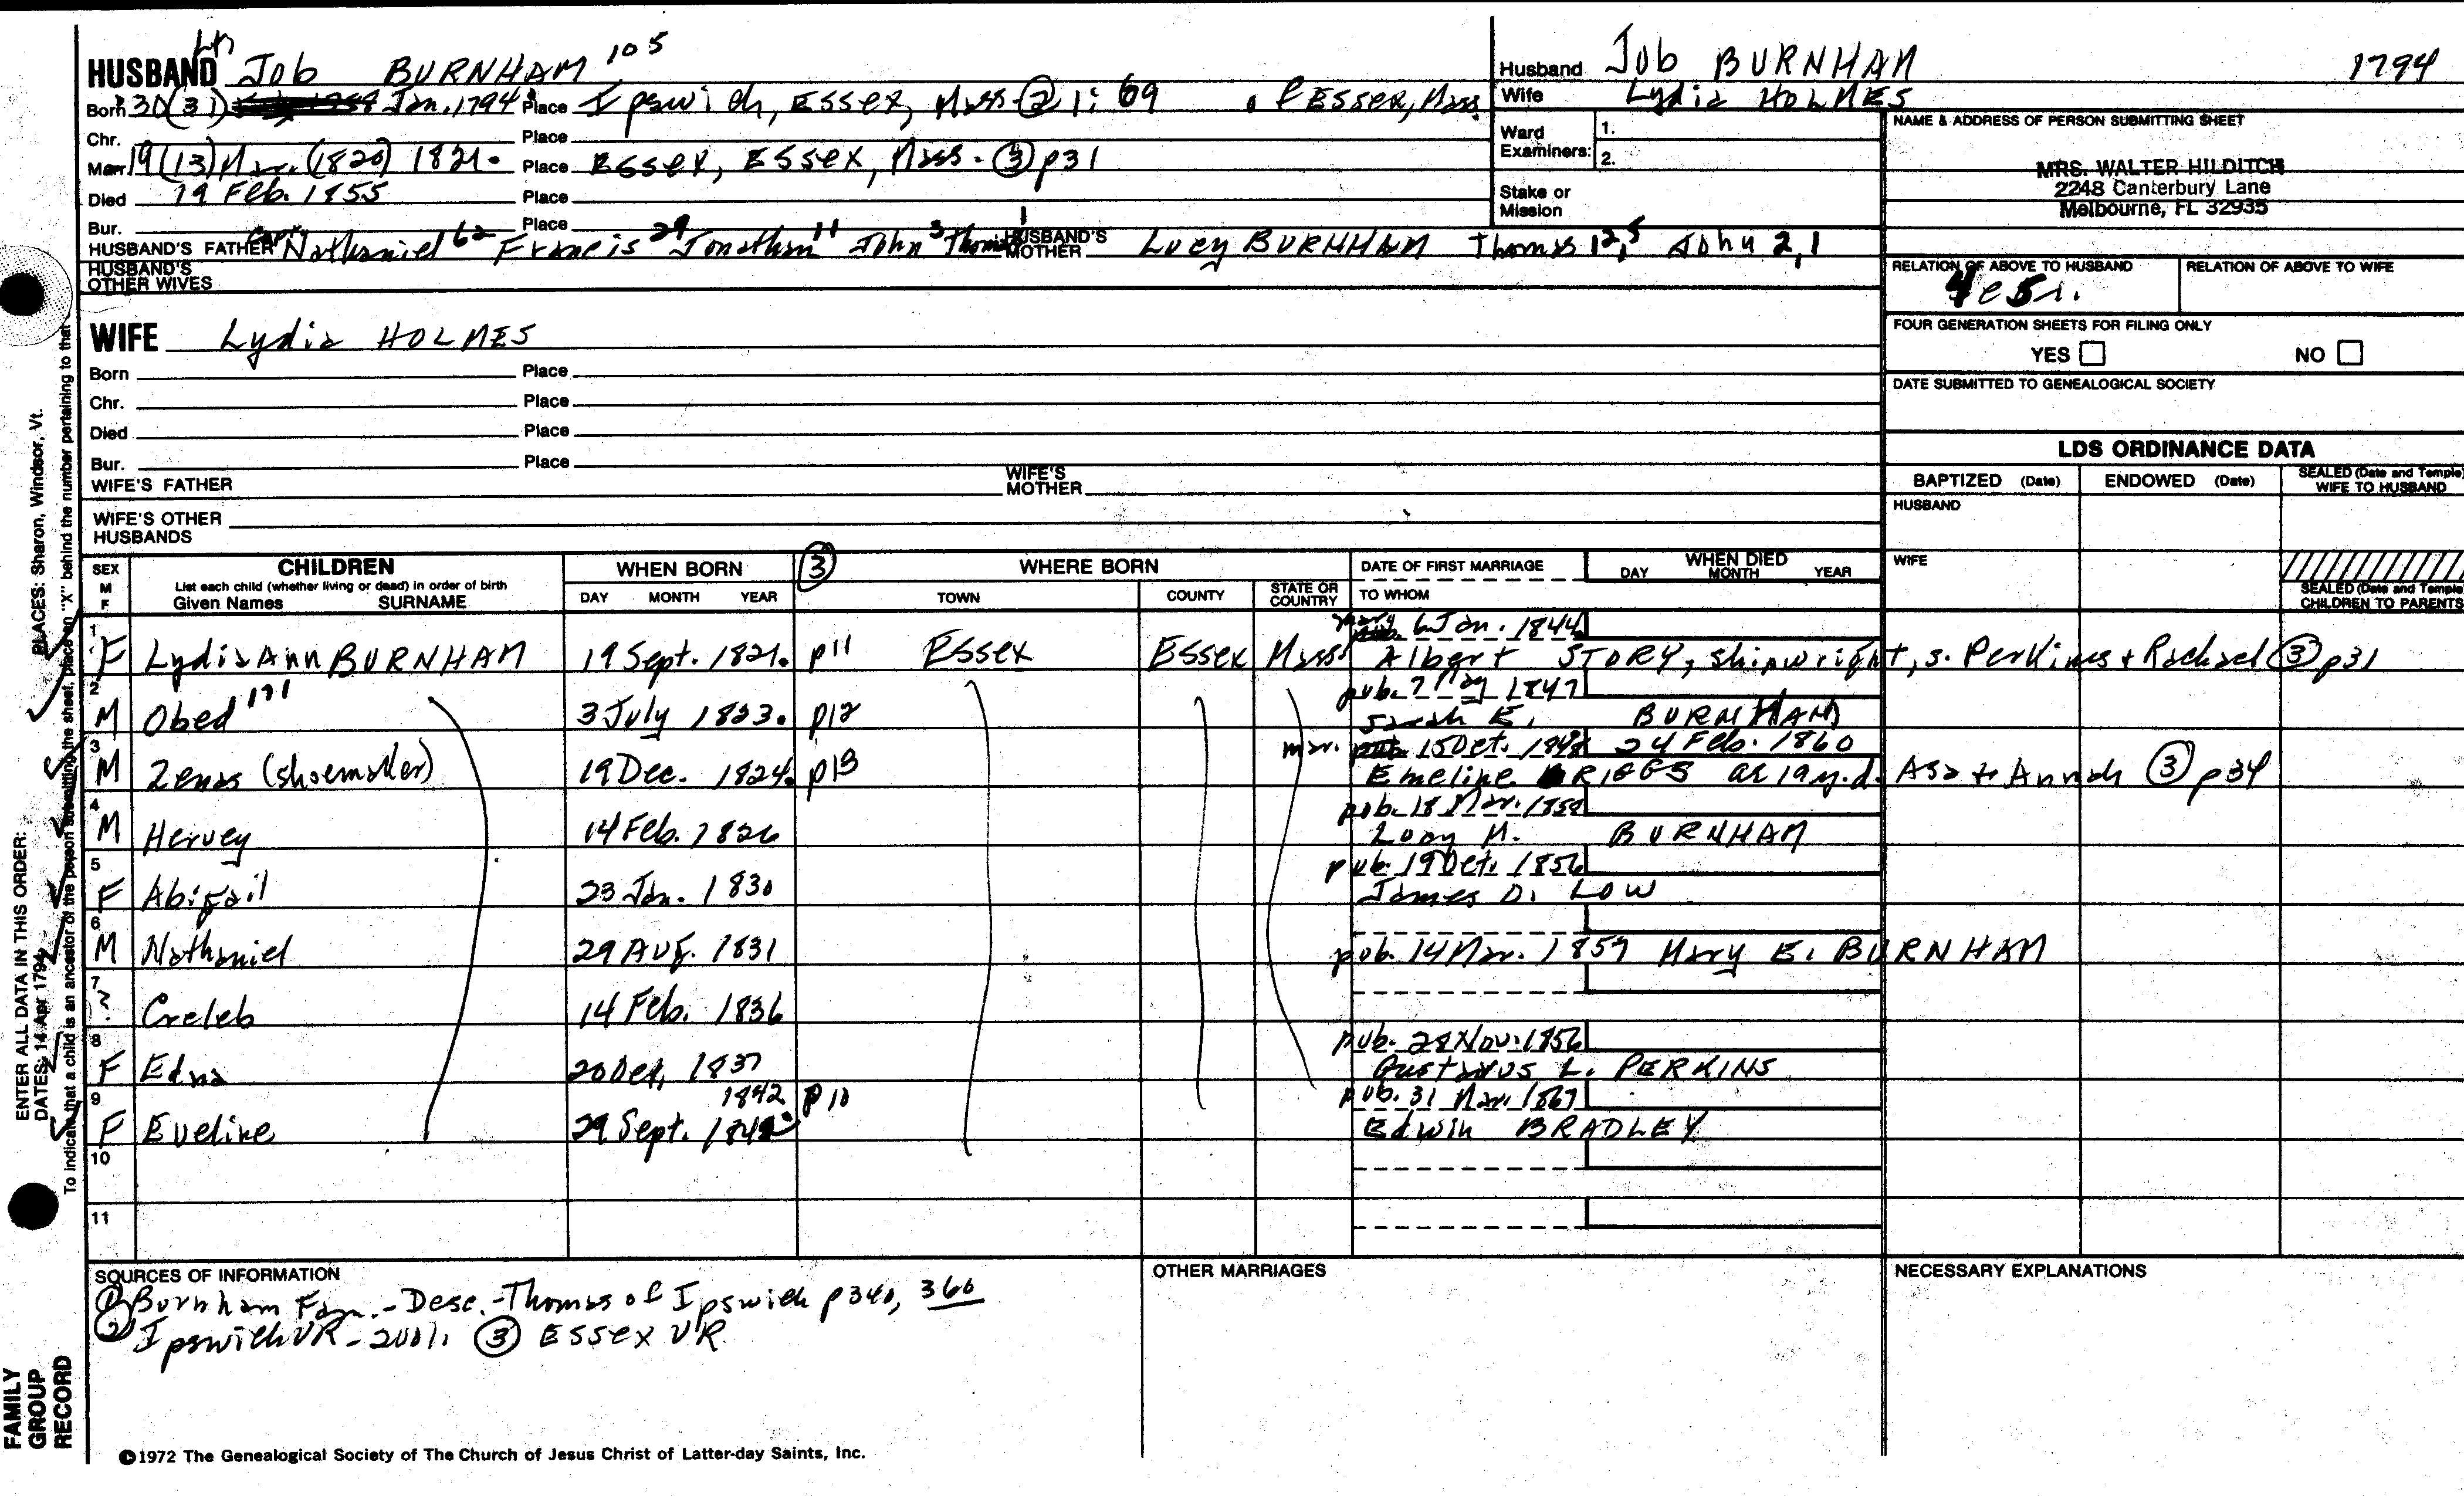 Husband Job BURNHAM 1794
Wife Lydia HOLMES
HUSBAND Job BURNHAM 105
Born 30(31) Jan. 1794 Place Ipswich, Essex, Mass. ② 1: 69 of ESSEX, Mass.
Chr. Place
Marr 19(13) Mar. (1820) 1821. Place ESSEX, ESSEX, Mass. ③ p31
Died 19 Feb. 1855 Place
Bur. Place
HUSBAND'S FATHER Capt. Nathaniel 62 Francis 29 Jonathan 11 John 3 Thomas 1 HUSBAND'S MOTHER Lucy BURNHAM Thomas 12,5 John 2,1
HUSBAND'S OTHER WIVES
Ward Examiners: 1. 2.
Stake or Mission
NAME & ADDRESS OF PERSON SUBMITTING SHEET
MRS. WALTER HILDITCH
2248 Canterbury Lane
Melbourne, FL 32935
RELATION OF ABOVE TO HUSBAND RELATION OF ABOVE TO WIFE
FOUR GENERATION SHEETS FOR FILING ONLY
YES NO
DATE SUBMITTED TO GENEALOGICAL SOCIETY
WIFE Lydia HOLMES
Born Place
Chr. Place
Died Place
Bur. Place
WIFE'S FATHER WIFE'S MOTHER
WIFE'S OTHER HUSBANDS
LDS ORDINANCE DATA
BAPTIZED (Date) ENDOWED (Date) SEALED (Date and Temple) WIFE TO HUSBAND
HUSBAND
WIFE
SEALED (Date and Temple) CHILDREN TO PARENTS
SEX M F
CHILDREN
List each child (whether living or dead) in order of birth
Given Names SURNAME
WHEN BORN
DAY MONTH YEAR
③ WHERE BORN
TOWN COUNTY STATE OR COUNTRY
DATE OF FIRST MARRIAGE
TO WHOM
WHEN DIED
DAY MONTH YEAR
6 Jan. 1844
1 F Lydia Ann BURNHAM 19 Sept. 1821. p11 Essex Essex Mass. Albert STORY, shipwright, s. Perkins + Rachael ③ p31
pub. 7 May 1847
2 M Obed 171 3 July 1823. p12 Sarah E. BURNHAM
mar. 15 Oct. 1848 24 Feb. 1860
3 M Zenas (shoemaker) 19 Dec. 1824. p13 Emeline RIGGS ae 19 y. d. Asa + Annah ③ p34
pub. 18 Mar. 1850
4 M Hervey 14 Feb. 1826 Lucy M. BURNHAM
pub. 19 Oct. 1856
5 F Abigail 23 Jan. 1830 James D. LOW
6 M Nathaniel 29 Aug. 1831 pub. 14 Mar. 1857 Mary E. BURNHAM
7 ? Creleb 14 Feb. 1836
pub. 28 Nov. 1856
8 F Edna 20 Oct. 1837 Gustavus L. PERKINS
1842 p10 pub. 31 Mar. 1867
9 F Eveline 29 Sept. Edwin BRADLEY
10
11
SOURCES OF INFORMATION
① Burnham Fam. - Desc. - Thomas of Ipswich p340, 360
② Ipswich VR - 2vol. ③ ESSEX VR
OTHER MARRIAGES
NECESSARY EXPLANATIONS
©1972 The Genealogical Society of The Church of Jesus Christ of Latter-day Saints, Inc.
ENTER ALL DATA IN THIS ORDER:
DATES: 14 Apr 1794 PLACES: Sharon, Windsor, Vt.
To indicate that a child is an ancestor of the person submitting the sheet, place an "X" behind the number pertaining to that
FAMILY
GROUP
RECORD